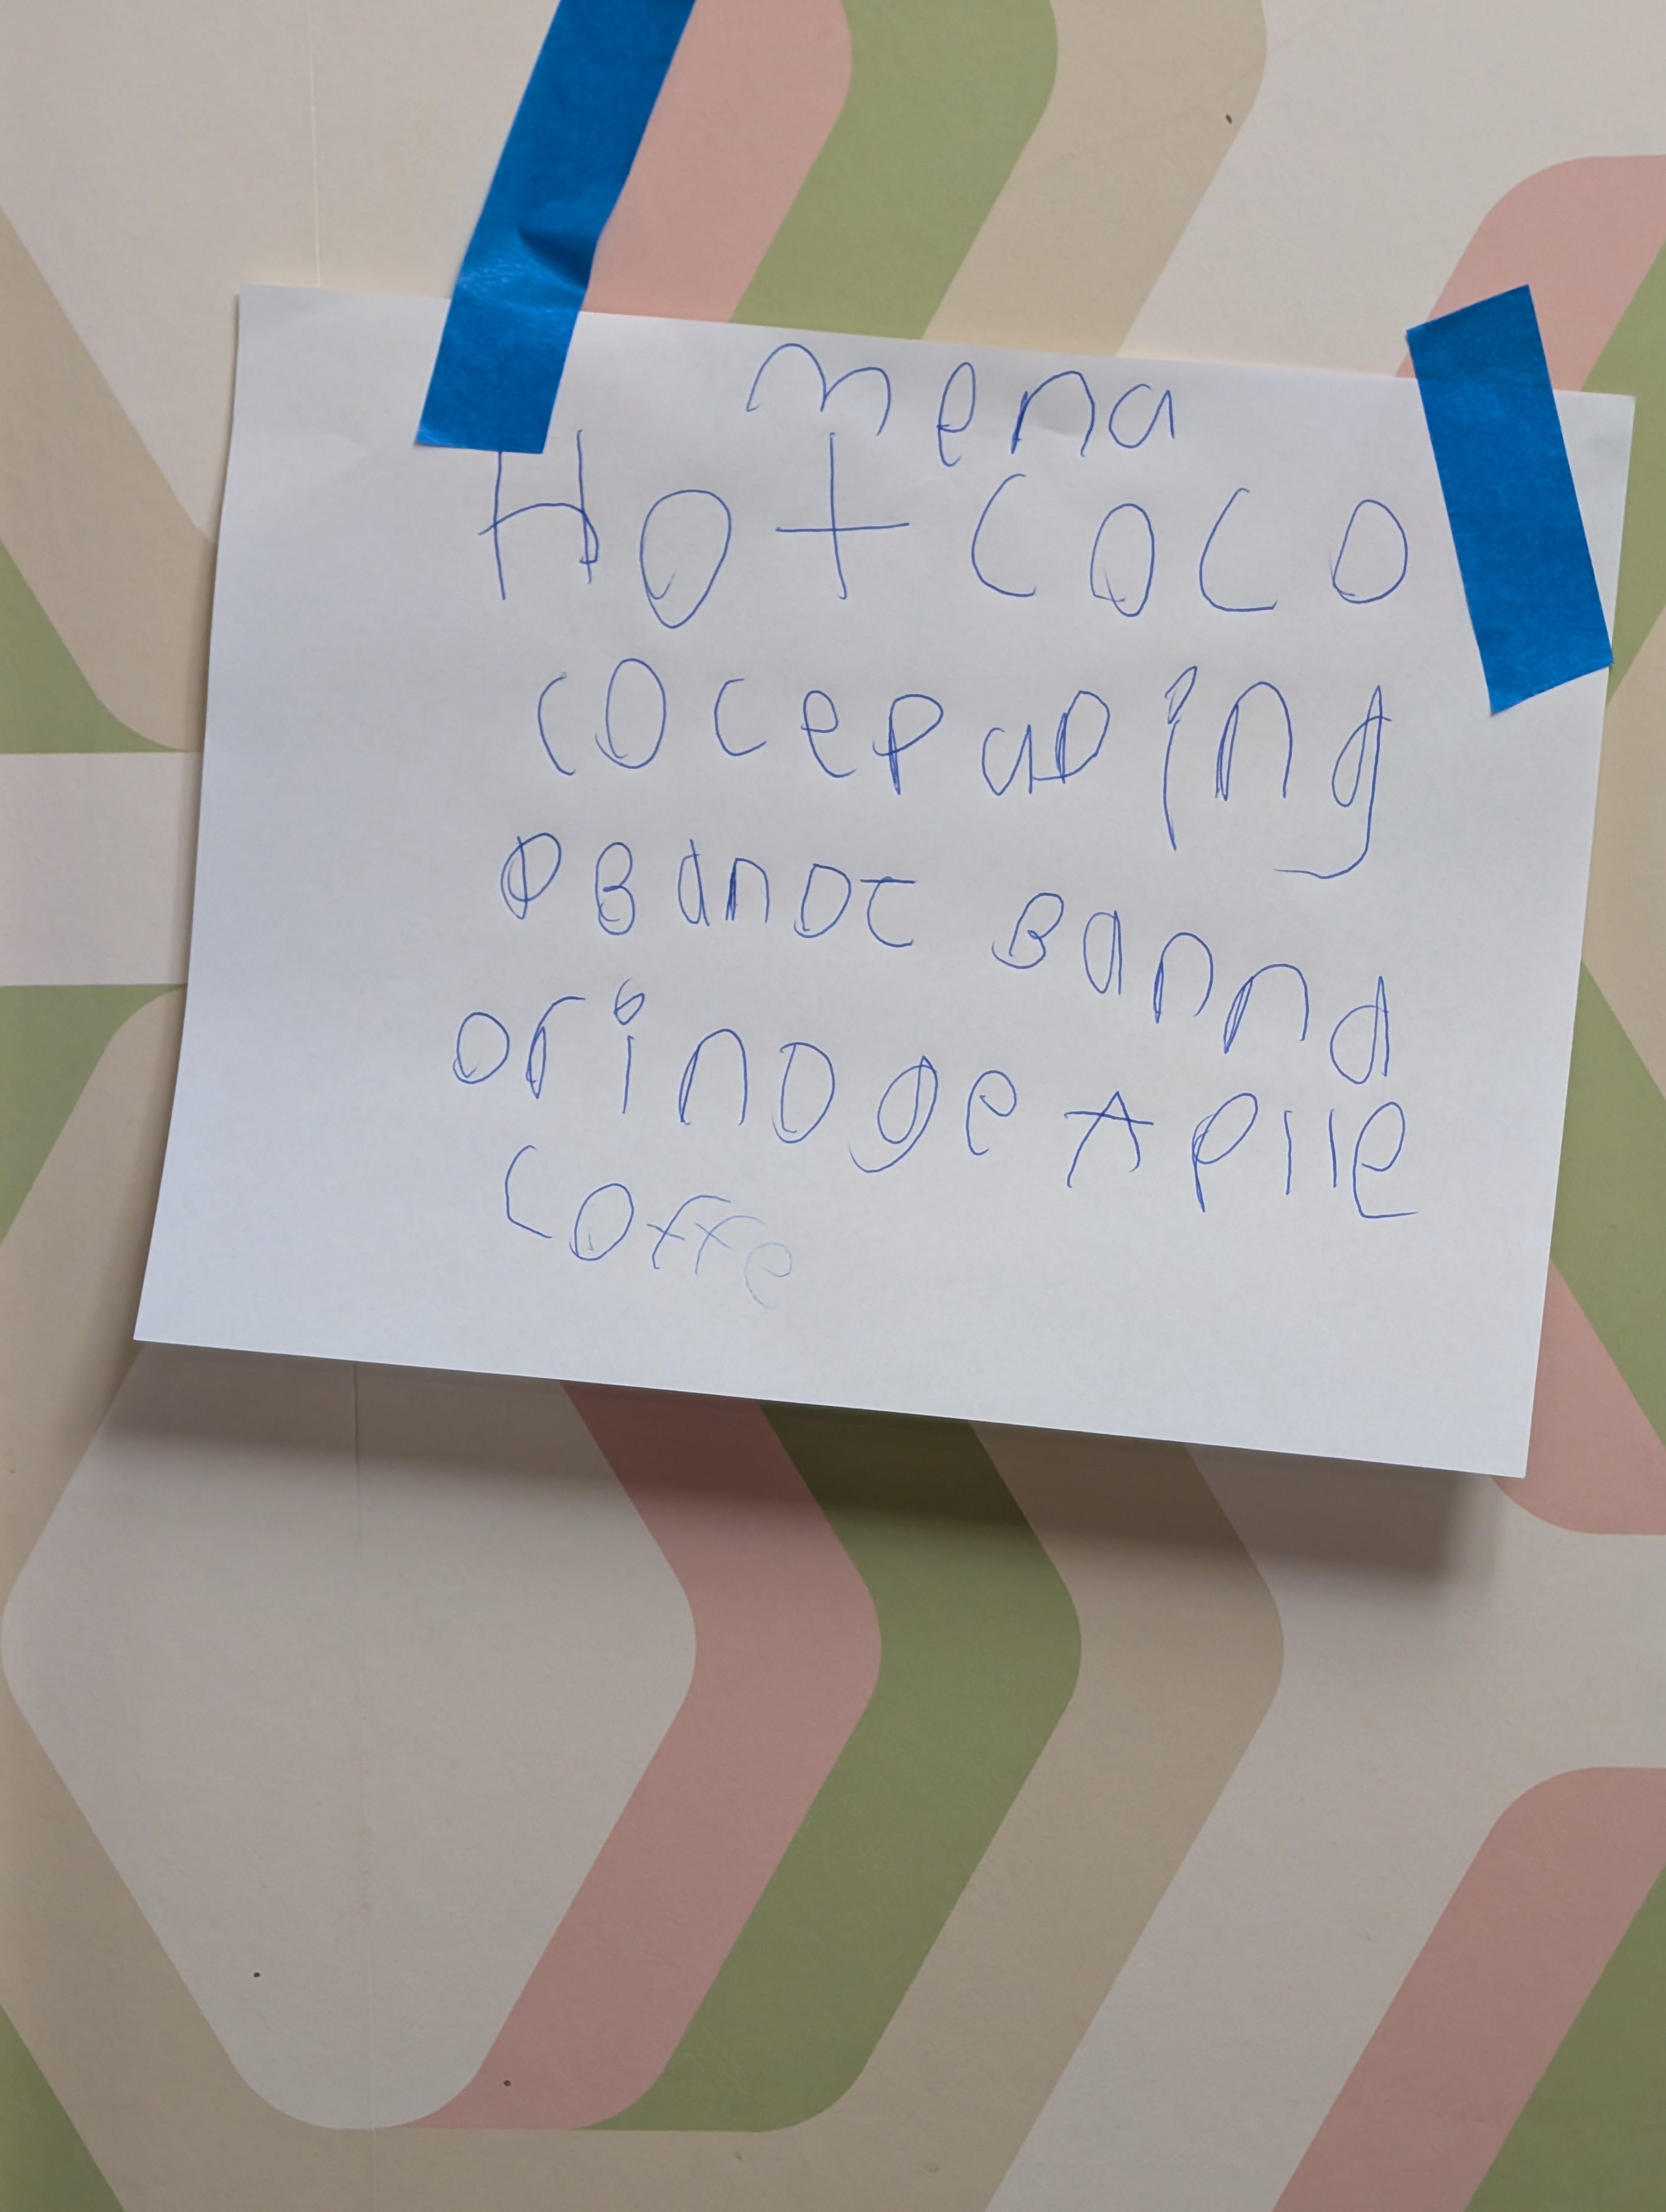 mena
Hot coco
cocepuding
PBandt Bannd
orinoge Aplle
coffe